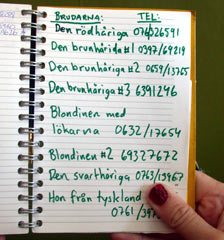 BRUDARNA: TEL:
Den rödhåriga 076026591
Den brunhårida #1 0397/69219
Den brunhåriga #2 0659/13765
Den brunhåriga #3 6391246
Blondinen med
lökarna 0632/17654
Blondinen #2 69327672
Den svarthåriga 0763/13967
Hon från tyskland
0761/397